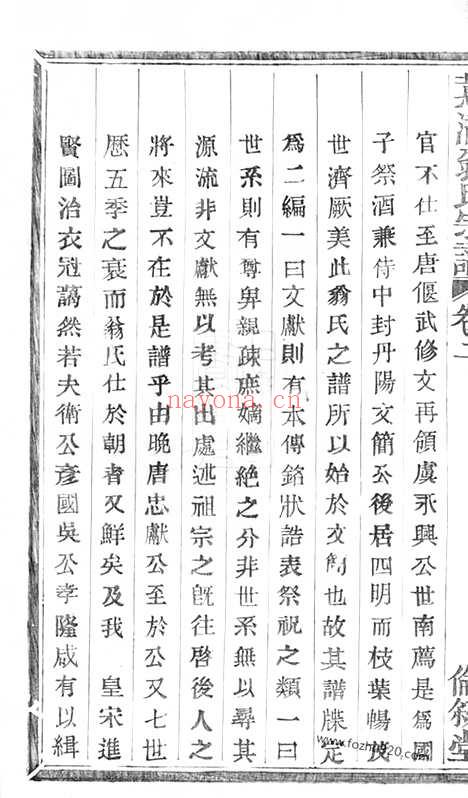 翁氏宗譜 卷二
倫敘堂
官不仕至唐偃武修文再領虞永興公世南薦是爲國
子祭酒兼侍中封丹陽文簡公後居四明而枝葉暢茂
世濟厥美此翁氏之譜所以始於文簡也故其譜牒定
爲二編一曰文獻則有本傳銘狀誥表祭祝之類一曰
世系則有尊卑親疎庶嫡繼絶之分非世系無以尋其
源流非文獻無以考其出處述祖宗之旣往啓後人之
將來豈不在於是譜乎由晚唐忠獻公至於公又七世
歷五季之衰而翁氏仕於朝者又鮮矣及我 皇宋進
賢圖治衣冠藹然若夫衛公彥國吳公孝隆咸有以緝
nayona.cn
www.fozhu920.com